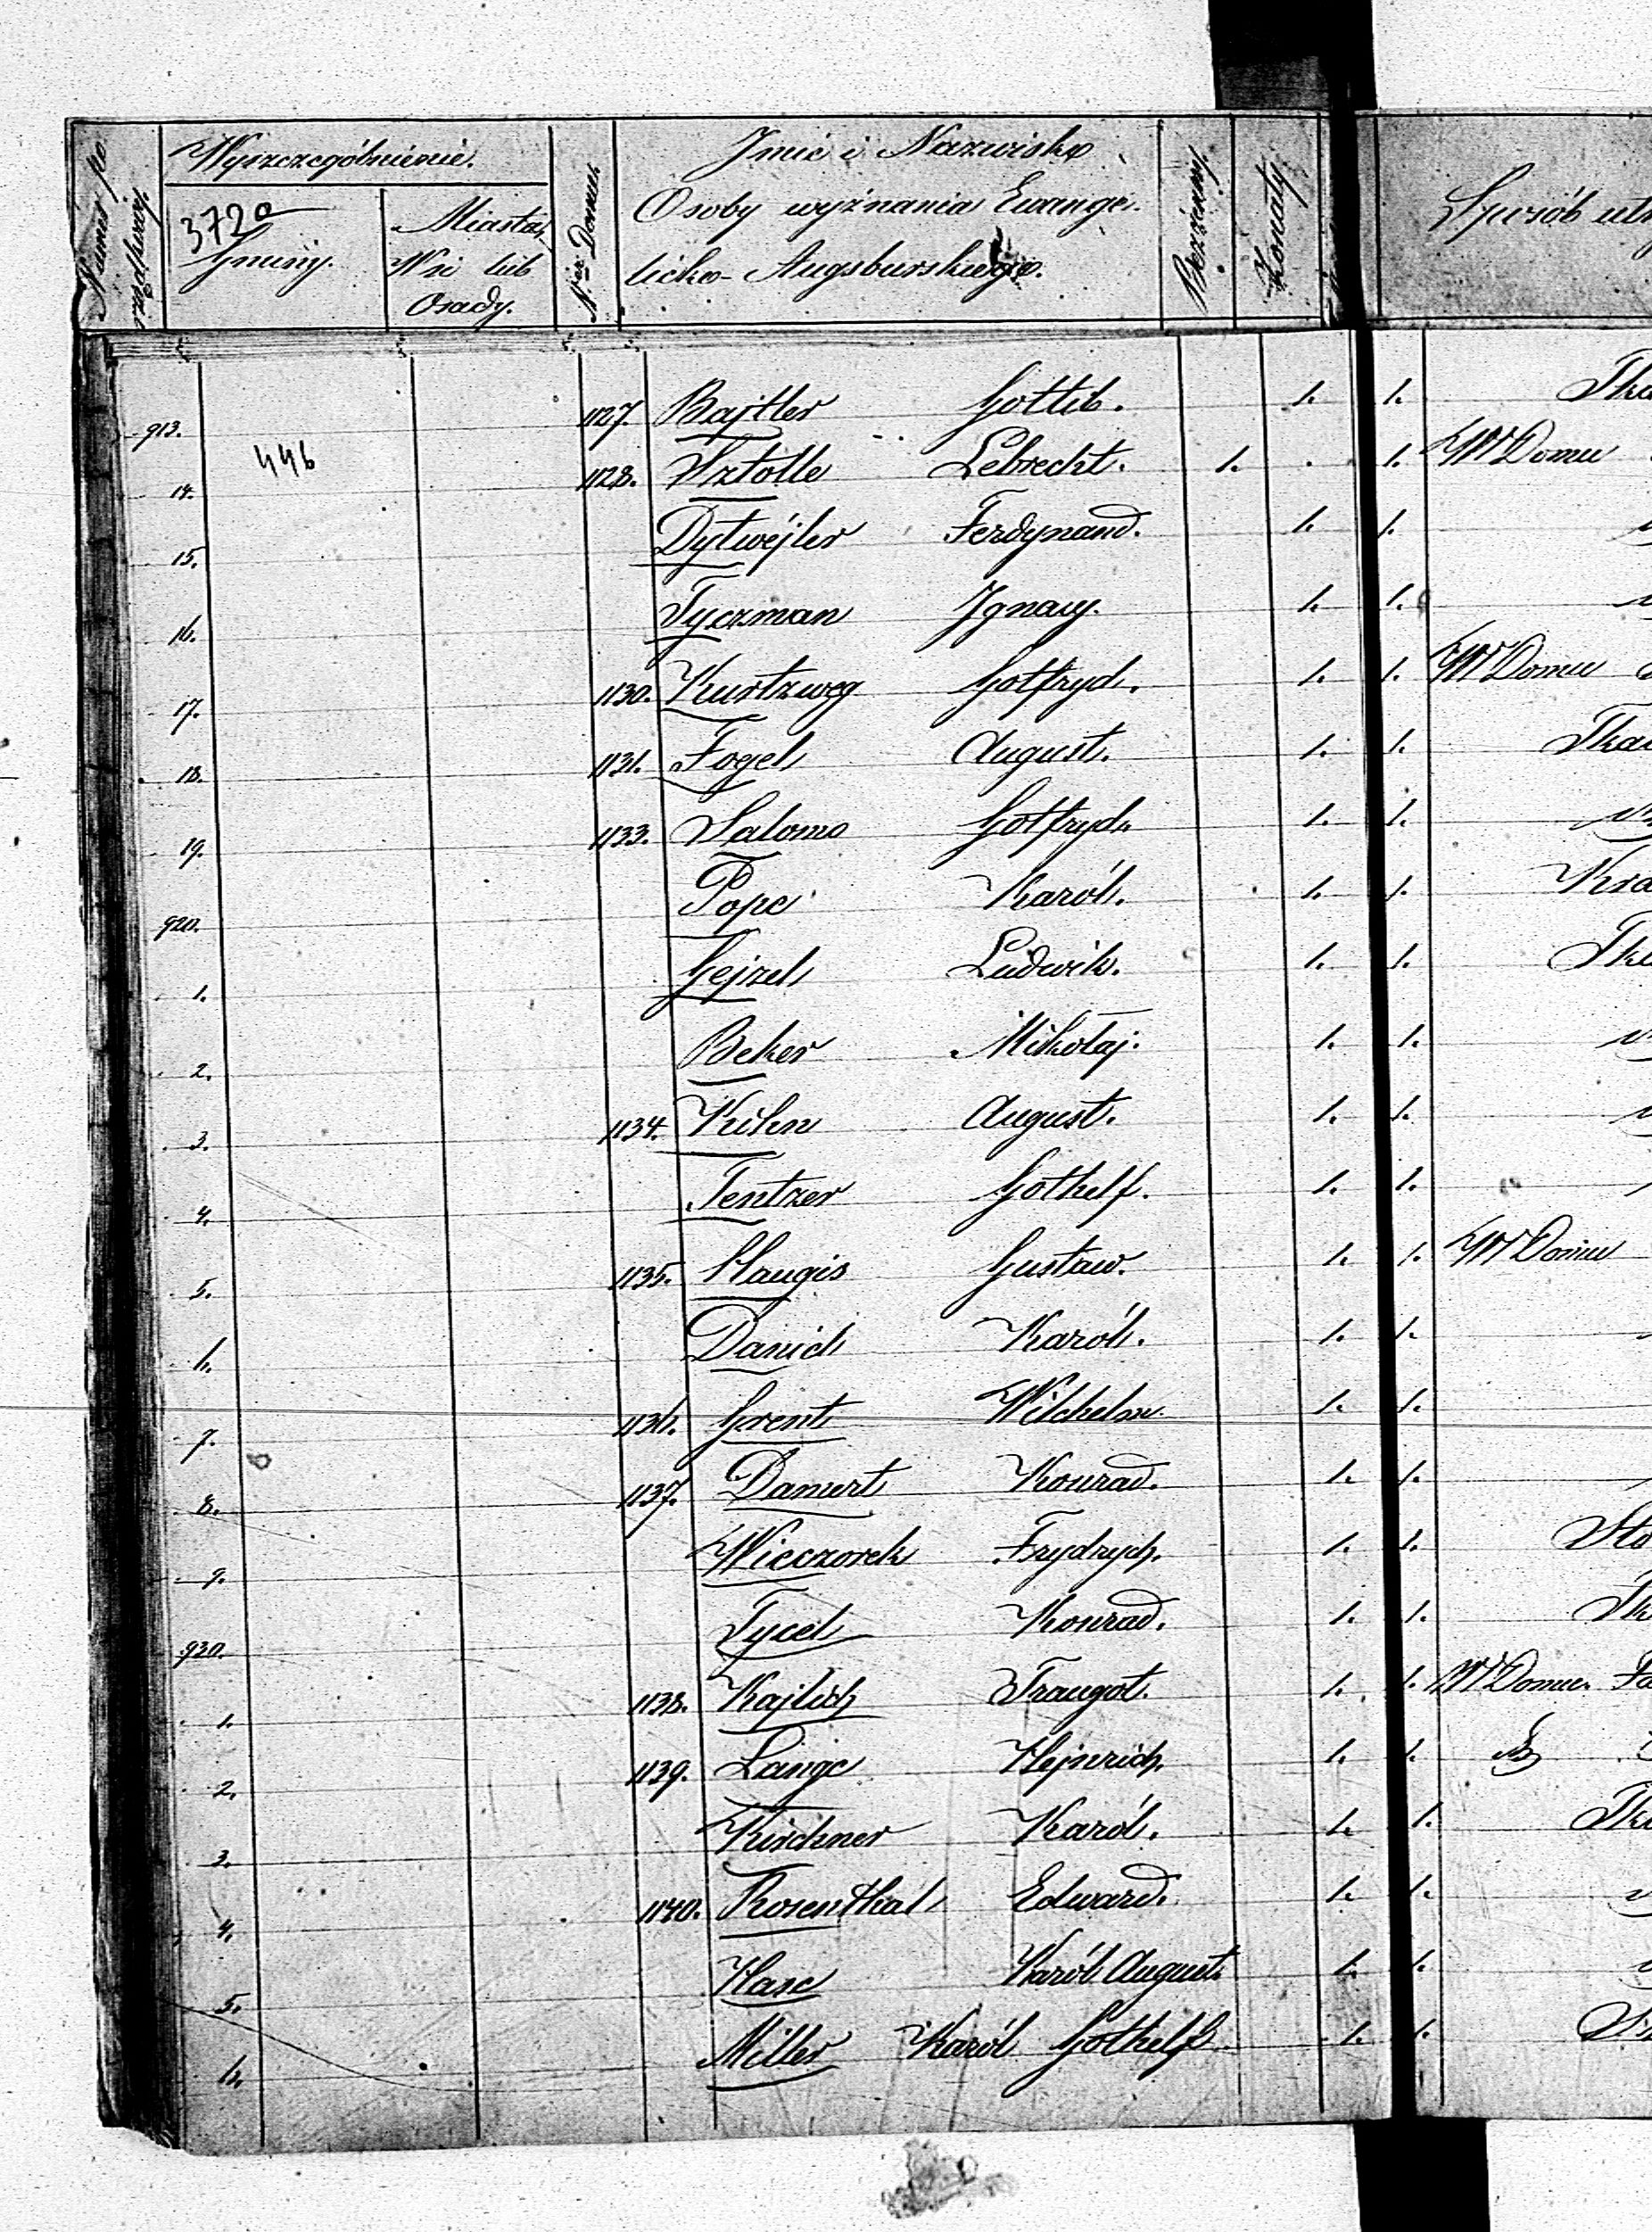 Numer po
rządkowy.
Wyszczególnienie.
372a
Gminy.
Miasta,
Wsi lub
Osady.
Nr. Domu.
Imie i Nazwisko
Osoby wyznania Ewange-
licko-Augsburskiego.
Bezżenny.
Żonaty.
Sposób ut
446
913. 1127. Bajtler Gottlib. 1. 1. Tka
14. 1128. Sztolle Lebrecht. 1. . 1. W Domu
15. Dytwejler Ferdynand. 1. 1.
16. Tyczman Ignacy. 1. 1.
17. 1130. Kurtzweg Gotfryd. 1. 1. W Domu
18. 1131. Fogel August. 1. 1. Tka
19. 1133. Salomo Gotfryd. 1. 1.
920. Pope Karól. 1. 1. Kra
1. Gejzel Ludwik. 1. 1. Tk
2. Beker Mikołaj. 1. 1.
3. 1134. Kihn August. 1. 1.
4. Tentzer Gothelf. 1. 1.
5. 1135. Haugis Gustaw. 1. 1. W Domu
6. Daniel Karól. 1. 1.
7. 1136. Grent Wilchelm. 1. 1.
8. 1137. Damert Konrad. 1. 1.
9. Wieczorek Frydrych. 1. 1. Sto
930. Tycel Konrad. 1. 1. Tk
1. 1138. Kajlich Traugot. 1. 1. W Domu Fa
2. 1139. Lange Hejnrich. 1. 1.
3. Kirchner Karól. 1. 1. Tk
4. 1140. Rosenthal Edward. 1. 1.
5. Hase Karól August. 1. 1.
6. Miller Karól Gothelf. 1. 1.